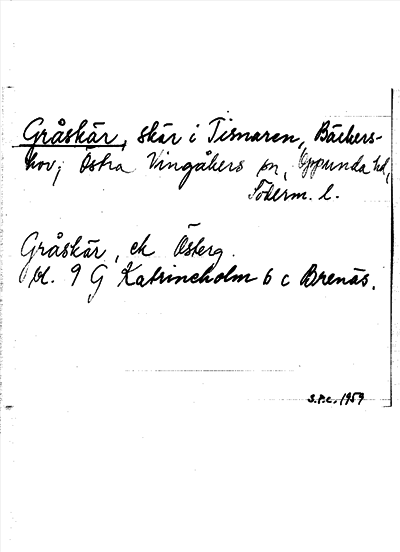 Gråskär, skär i Tisnaren, Bäckers-
hov; Östra Vingåkers sn, Oppunda hd,
Söderm. l.
Gråskär, ek Österg.
bl. 9 G Katrineholm 6 c Brenäs.
S.P.C. 1959